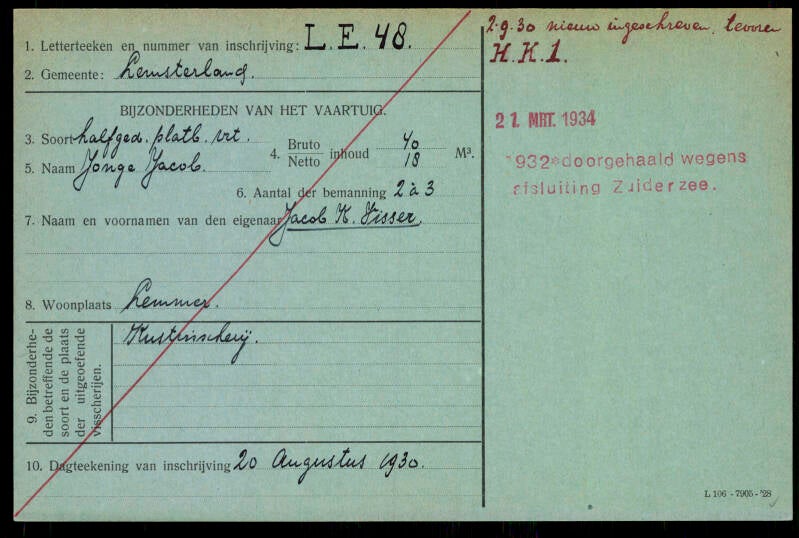 1. Letterteeken en nummer van inschrijving: L.E. 48.
2. Gemeente: Lemsterland.
BIJZONDERHEDEN VAN HET VAARTUIG.
3. Soort halfged. platb. vrt.
4. Bruto Netto inhoud 40 18 M³.
5. Naam Jonge Jacob.
6. Aantal der bemanning 2 à 3
7. Naam en voornamen van den eigenaar Jacob K. Visser.
8. Woonplaats Lemmer.
9. Bijzonderhe-
den betreffende de
soort en de plaats
der uitgeoefende
visscherijen.
Kustvisscherij.
10. Dagteekening van inschrijving 20 Augustus 1930.
2-9-30 nieuw ingeschreven, tevoren
H.K.1.
21 MRT. 1934
1932 doorgehaald wegens
afsluiting Zuiderzee.
L 106 - 7905 - '28